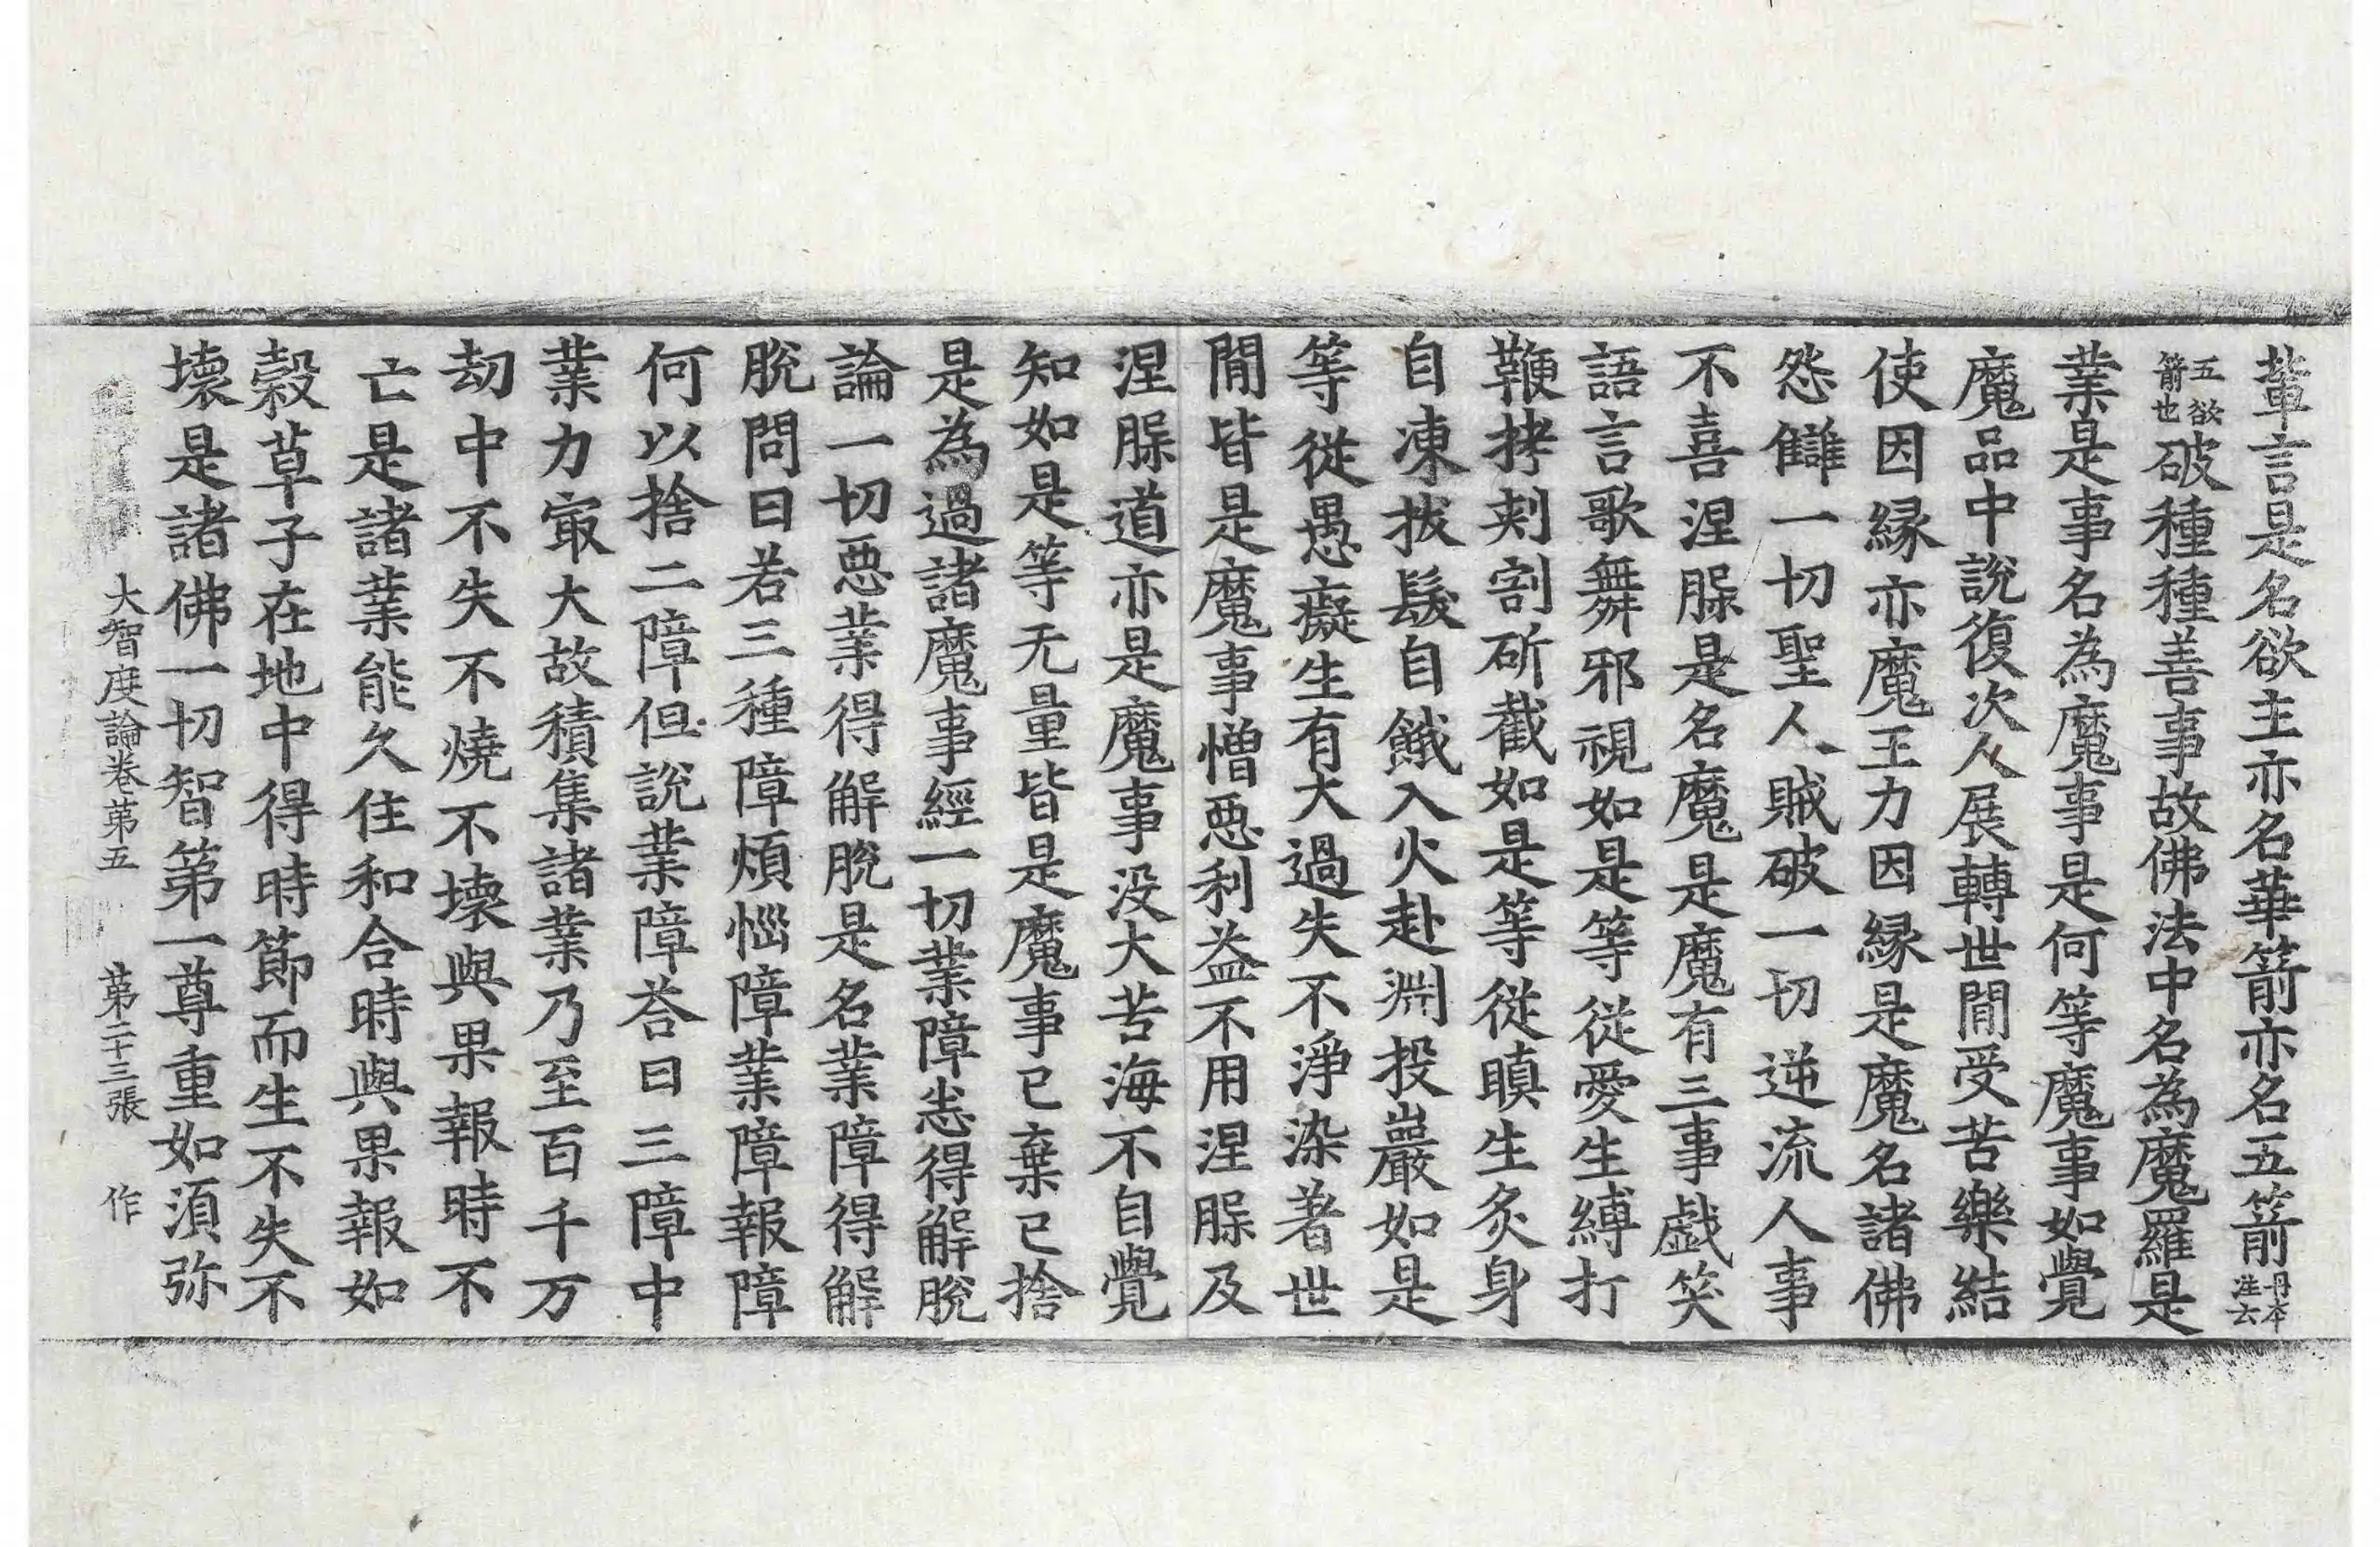 輩言是名欲主亦名華箭亦名五箭丹本注云
五欲箭也破種種善事故佛法中名為魔羅是
業是事名為魔事是何等魔事如覺
魔品中說復次人展轉世間受苦樂結
使因緣亦魔王力因緣是魔名諸佛
怨讎一切聖人賊破一切逆流人事
不喜涅脲是名魔是魔有三事戲笑
語言歌舞邪視如是等從愛生縛打
鞭拷刾割斫截如是等從瞋生炙身
自凍拔髮自餓入火赴淵投巖如是
等從愚癡生有大過失不淨染著世
閒皆是魔事憎惡利益不用涅脲及
涅脲道亦是魔事没大苦海不自覺
知如是等无量皆是魔事已棄已捨
是為過諸魔事經一切業障悉得解脫
論一切惡業得解脫是名業障得解
脫問曰若三種障煩惱障業障報障
何以捨二障但說業障荅曰三障中
業力㝡大故積集諸業乃至百千万
劫中不失不燒不壞與果報時不
亡是諸業能久住和合時與果報如
穀草子在地中得時節而生不失不
壞是諸佛一切智第一尊重如須弥
大智度論卷第五　第二十三張　作